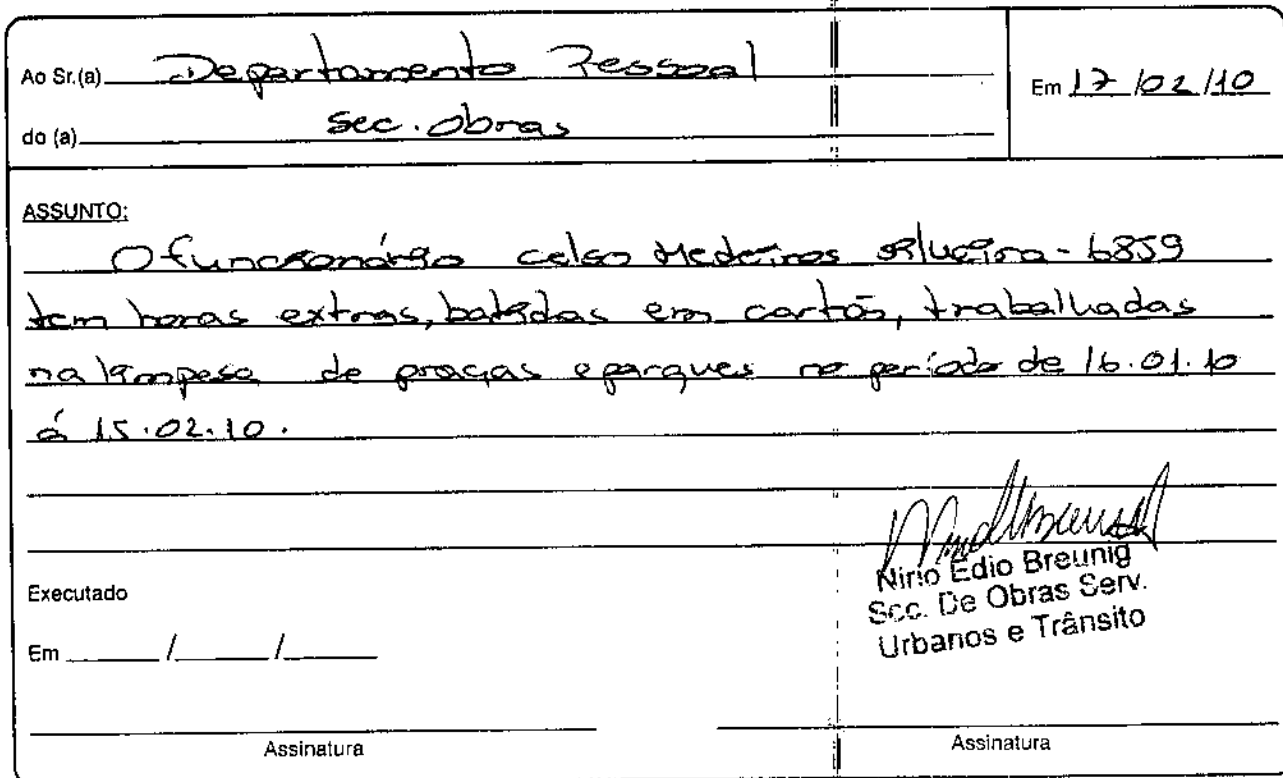 Ao Sr.(a) Departamento Pessoal
Em 17/02/10
do (a) Sec. Obras
ASSUNTO:
O funcionário celso Medeiros silveira - 6859
tem horas extras, batidas em cartão, trabalhadas
na limpesa de praças e parques no período de 16.01.10
á 15.02.10.
Nirio Edio Breunig
Sec. De Obras Serv.
Urbanos e Trânsito
Executado
Em ____/____/____
Assinatura
Assinatura